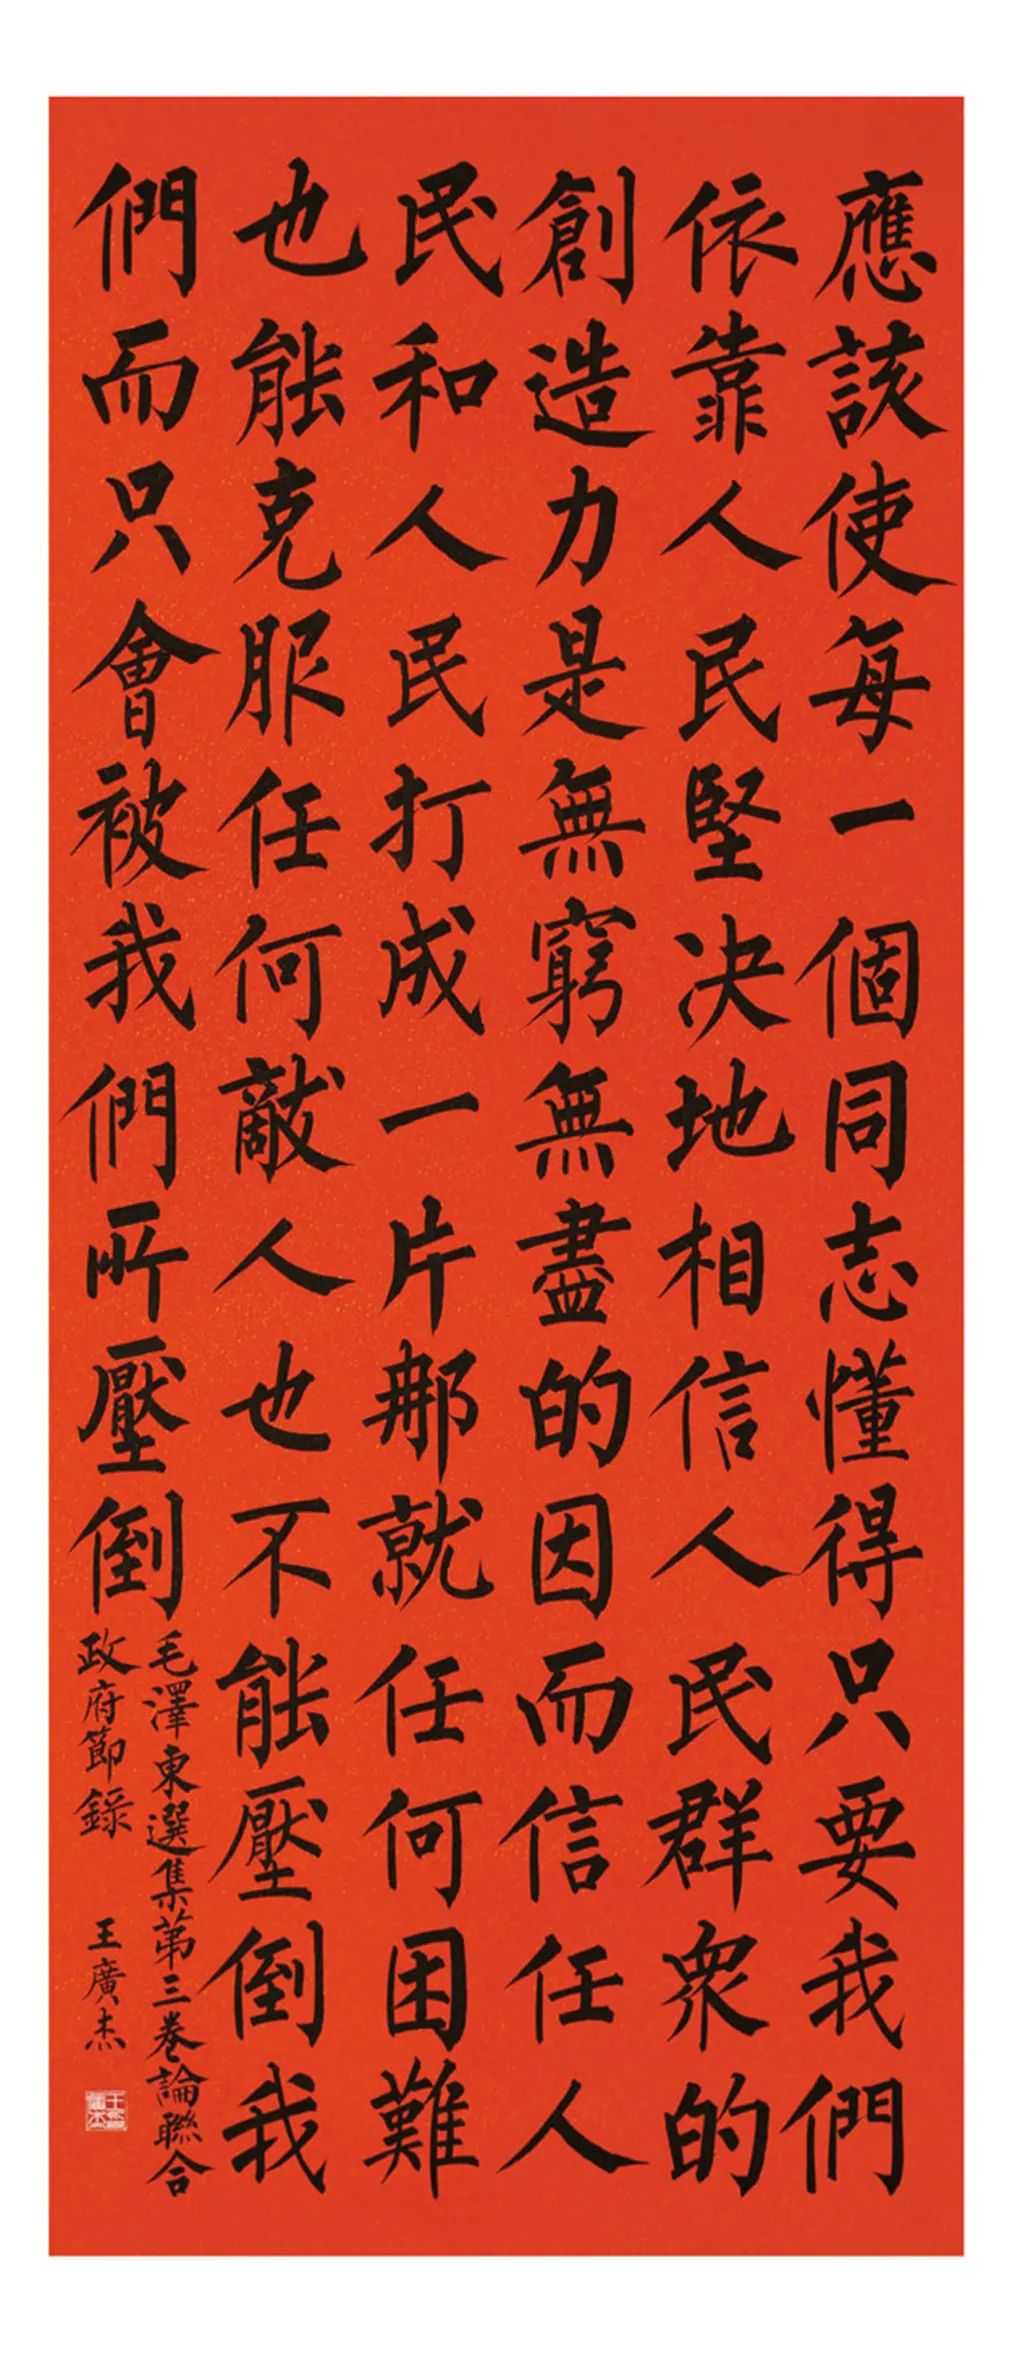 應該使每一個同志懂得只要我們
依靠人民堅决地相信人民群衆的
創造力是無窮無盡的因而信任人
民和人民打成一片那就任何困難
也能克服任何敵人也不能壓倒我
們而只會被我們所壓倒
毛澤東選集第三卷論聯合
政府節錄
王廣杰